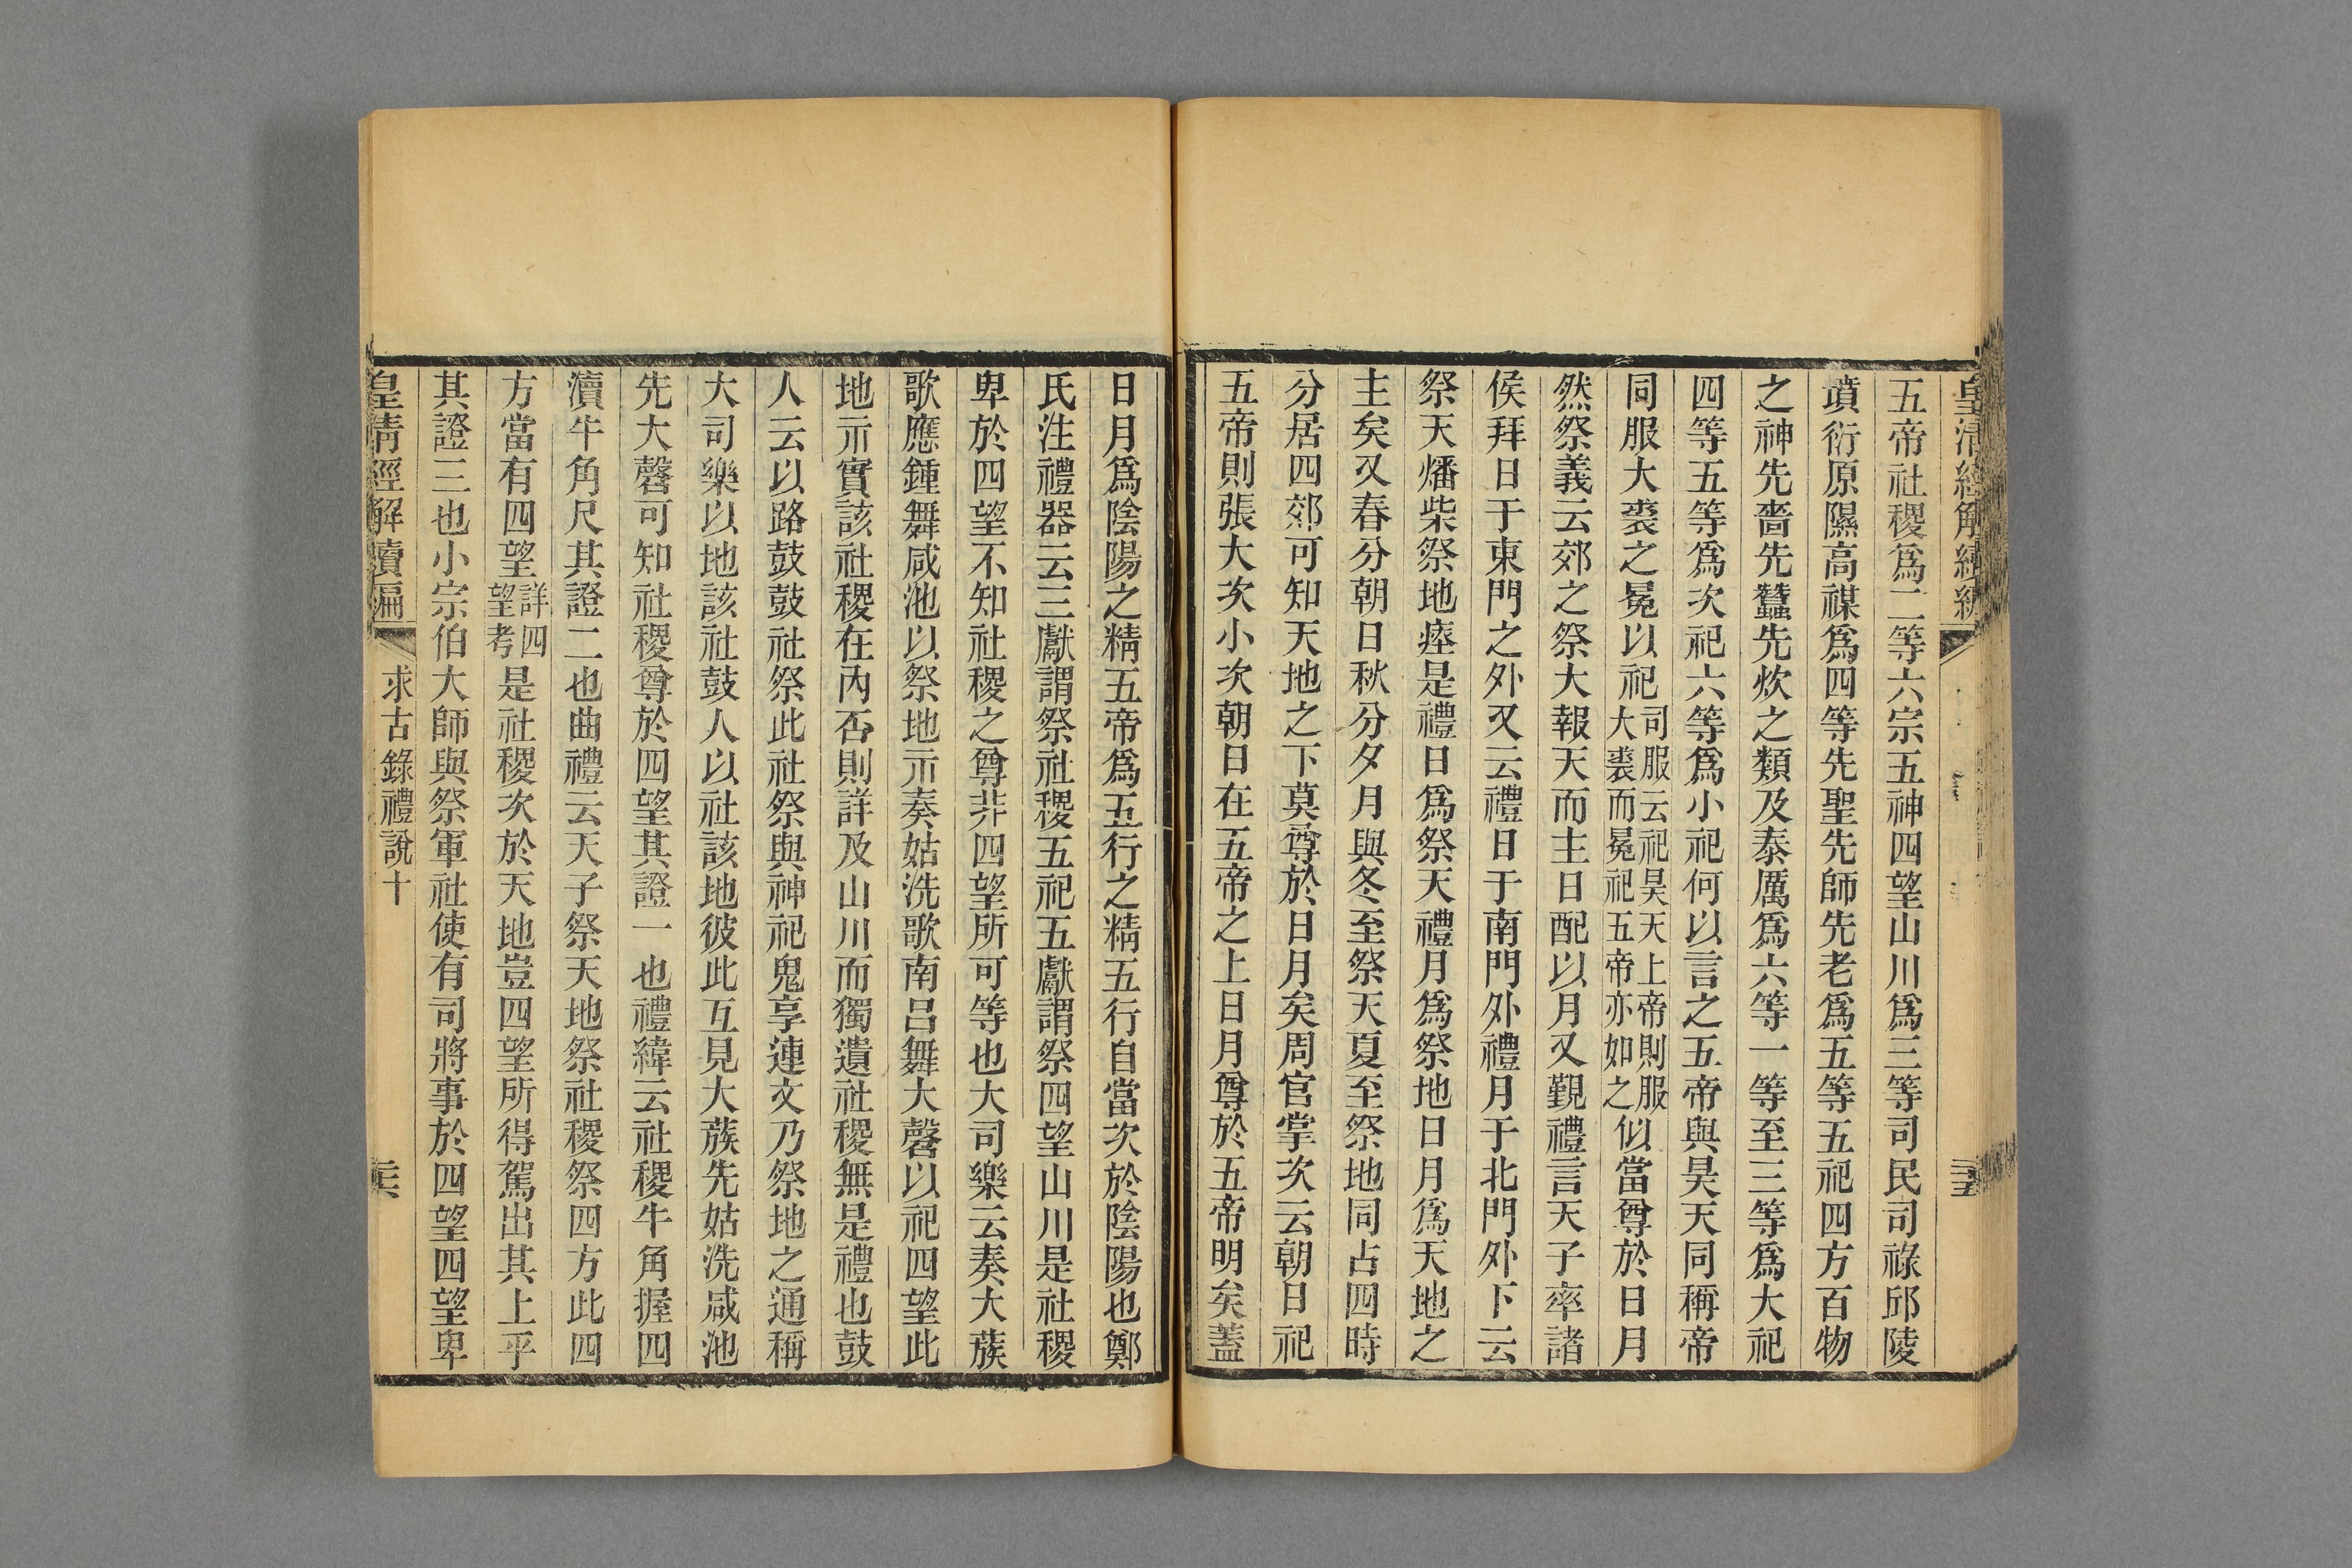 五帝社稷爲二等六宗五神四望山川爲三等司民司祿邱陵
墳衍原隰高禖爲四等先聖先師先老爲五等五祀四方百物
之神先嗇先蠶先炊之類及泰厲爲六等一等至三等爲大祀
四等五等爲次祀六等爲小祀何以言之五帝與昊天同稱帝
同服大裘之冕以祀司服云祀昊天上帝則服大裘而冕祀五帝亦如之似當尊於日月
然祭義云郊之祭大報天而主日配以月又覲禮言天子率諸
侯拜日于東門之外又云禮日于南門外禮月于北門外下云
祭天燔柴祭地瘞是禮日爲祭天禮月爲祭地日月爲天地之
主矣又春分朝日秋分夕月與冬至祭天夏至祭地同占四時
分居四郊可知天地之下莫尊於日月矣周官掌次云朝日祀
五帝則張大次小次朝日在五帝之上日月尊於五帝明矣蓋
日月爲陰陽之精五帝爲五行之精五行自當次於陰陽也鄭
氏注禮器云三獻謂祭社稷五祀五獻謂祭四望山川是社稷
卑於四望不知社稷之尊非四望所可等也大司樂云奏大蔟
歌應鍾舞咸池以祭地示奏姑洗歌南呂舞大磬以祀四望此
地示實該社稷在內否則詳及山川而獨遺社稷無是禮也鼓
人云以路鼓鼓社祭此社祭與神祀鬼享連文乃祭地之通稱
大司樂以地該社鼓人以社該地彼此互見大蔟先姑洗咸池
先大磬可知社稷尊於四望其證一也禮緯云社稷牛角握四
瀆牛角尺其證二也曲禮云天子祭天地祭社稷祭四方此四
方當有四望詳四望考是社稷次於天地豈四望所得駕出其上乎
其證三也小宗伯大師與祭軍社使有司將事於四望四望卑
皇清經解續編
求古錄禮說十